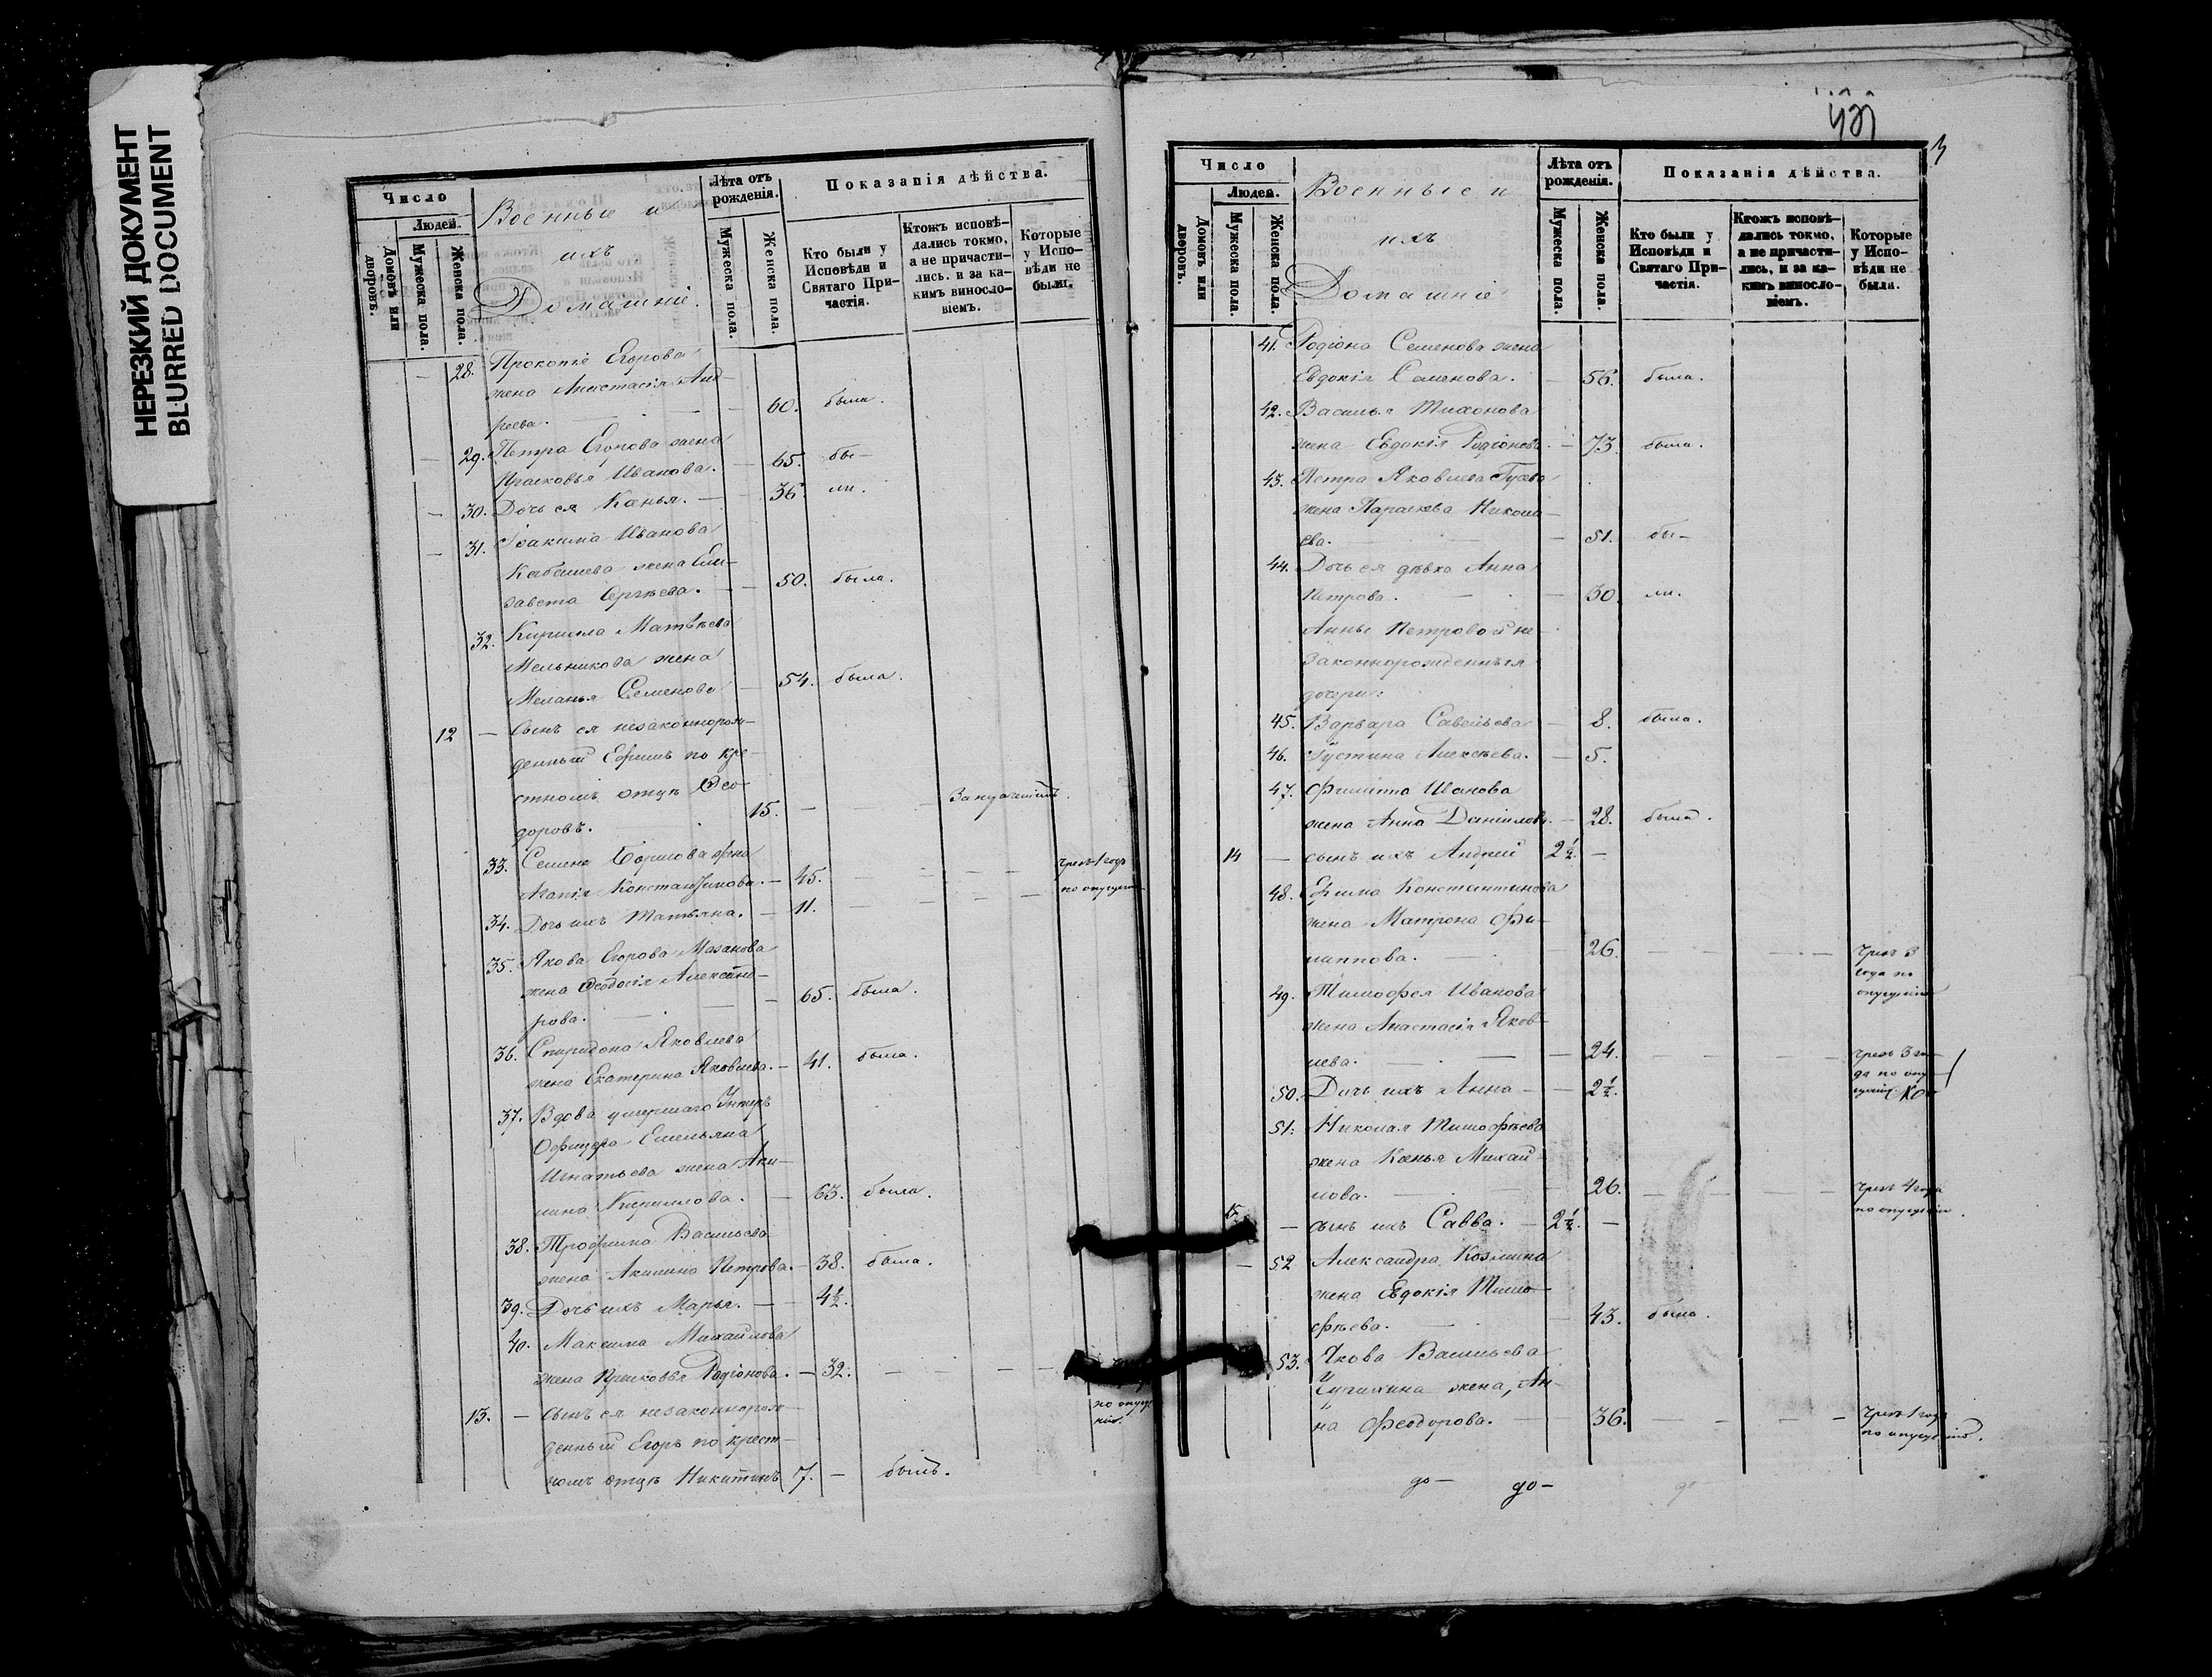 НЕРЕЗКИЙ ДОКУМЕНТ
BLURRED DOCUMENT
Число
Людей.
Домовъ или дворовъ.
Мужеска пола.
Женска пола.
Военные и
ихъ
Домашніе.
Лѣта отъ рожденія.
Мужеска пола.
Женска пола.
Показанія дѣйства.
Кто были у Исповѣди и Святаго Причастія.
Ктожъ исповѣдались токмо, а не причастились. и за какимъ винословіемъ.
Которые у Исповѣди не были.
— 28. Прокопія Егорова
жена Анастасія Анд-
реева. — 60. была.
— 29. Петра Егорова жена
Прасковья Иванова. — 65. бы-
— 30. Дочь ея Ксенья. — 36. ли.
— 31. Іоакима Иванова
жена Ели-
завета Сергѣева. — 50. была.
32. Кирилла Матвѣева
Мельникова жена
Меланья Семенова — 54. была.
12 — Сынъ ея незаконнорож-
денный Ефимъ по кре-
стномъ отцѣ Ѳео-
доровъ. 15. —
33. Семена Борисова жена
Агапія Константинова. — 45. — чрезъ 1 годъ
34. Дочь ихъ Татьяна. — 11. — по опущен
35. Якова Егорова Мазанова
жена Ѳеодосія Александ-
рова. — 65. была.
36. Спиридона Яковлева
жена Екатерина Яковлева. — 41. была.
37. Вдова умершаго Унтеръ
Офицера Емельяна
Игнатьева жена Аки-
лина Кириллова. — 63. была.
38. Трофима Васильева
жена Акилина Петрова. — 38. была.
39. Дочь ихъ Марья. — 4½.
40. Максима Михайлова
жена Прасковья Родіонова. — 32. —
13. — Сынъ ея незаконнорож-
денный Егоръ по крест-
номъ отцѣ Никитинъ 7. — былъ.
по опуще
нію.
Число
Людей.
Домовъ или дворовъ.
Мужеска пола.
Женска пола.
Военные и
ихъ
Домашніе
Лѣта отъ рожденія.
Мужеска пола.
Женска пола.
Показанія дѣйства.
Кто были у Исповѣди и Святаго Причастія.
Ктожъ исповѣдались токмо, а не причастились, и за какимъ винословіемъ.
Которые у Исповѣди не были.
41. Родіона Семенова жена
Евдокія Семенова. — 56. была.
42. Василья Тихонова
жена Евдокія Родіонова. — 73. была.
43. Петра Яковлева
жена Параскева Никола-
ева. — 51. бы-
44. Дочь ея дѣвка Анна
Петрова. — 30. ли.
Анны Петровой не-
законнорожденныя
дочери:
45. Варвара Савельева — 8. была.
46. Іустина Алексѣева. — 5.
47. Филиппа Иванова
жена Анна Даніилова. — 28. была.
14 — сынъ ихъ Андрей 2½. —
48. Ефима Константинова
жена Матрона Фи-
липпова. — 26. — чрезъ 3
года по
опущенію
49. Тимофея Иванова
жена Анастасія Яков-
лева. — 24. — чрезъ 3 го-
да по опу-
щенію
50. Дочь ихъ Анна — 2½.
51. Николая Тимофѣева
жена Ксенья Михай-
лова. — 26. — чрезъ 4 года
по опущенію.
15 — сынъ ихъ Савва. — 2½. —
— 52 Александра Козмина
жена Евдокія Тимо-
фѣева. — 43. была.
53. Якова Васильева
жена, Ан-
на Феодорова. — 36. — чрезъ 1 годъ
по опущенію.
до— до— до